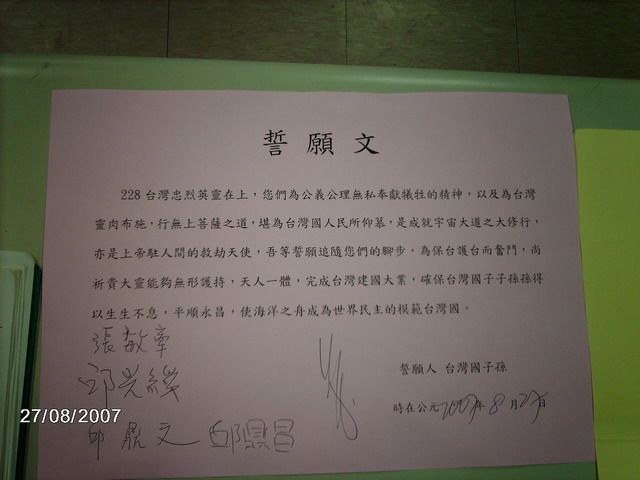 誓願文
228台灣忠烈英靈在上，您們為公義公理無私奉獻犧牲的精神，以及為台灣
靈肉布施，行無上菩薩之道，堪為台灣國人民所仰慕，是成就宇宙大道之大修行，
亦是上帝駐人間的救劫天使，吾等誓願追隨您們的腳步，為保台護台而奮鬥，尚
祈貴大靈能夠無形護持，天人一體，完成台灣建國大業，確保台灣國子子孫孫得
以生生不息，平順永昌，使海洋之舟成為世界民主的模範台灣國。
誓願人 台灣國子孫
時在公元2007年8月27日
邱鼎文
27/08/2007